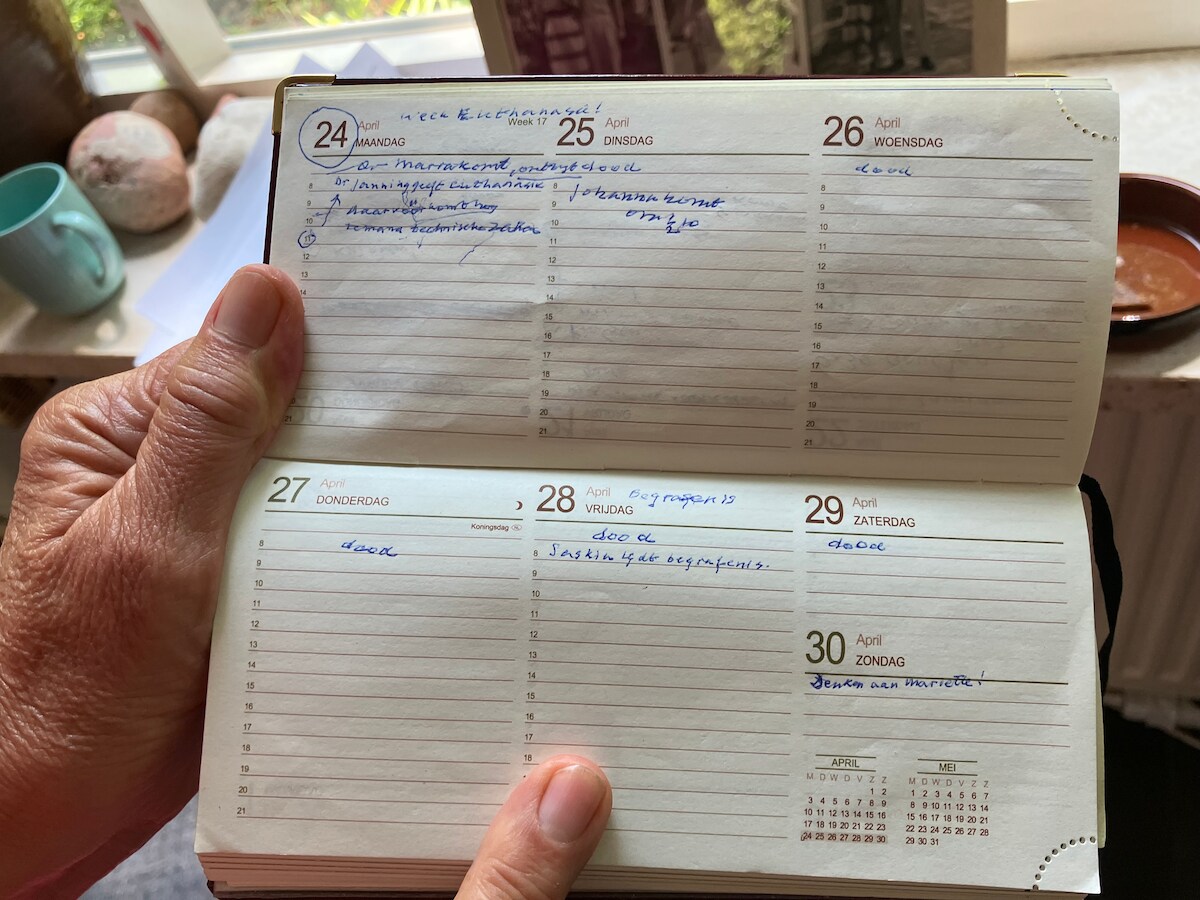 week Euthanasie!
24 April
MAANDAG
Week 17
Dr Mariakomt
Dr Janninggeeft euthanasie
8
9
10
11
12
13
14
21
25 April
DINSDAG
dood
Johanna komt
om 1/2 10
8
9
10
11
12
13
14
15
16
17
18
19
20
21
26 April
WOENSDAG
dood
8
9
10
11
12
13
14
15
16
17
18
19
20
21
27 April
DONDERDAG
Koningsdag NL
dood
8
9
10
11
12
13
14
15
16
17
18
19
20
21
28 April Begrafenis
VRIJDAG
dood
Saskia leidt begrafenis.
8
9
10
11
12
13
14
15
16
17
18
29 April
ZATERDAG
dood
30 April
ZONDAG
Denken aan Mariette!
APRIL
M D W D V Z Z
1 2
3 4 5 6 7 8 9
10 11 12 13 14 15 16
17 18 19 20 21 22 23
24 25 26 27 28 29 30
MEI
M D W D V Z Z
1 2 3 4 5 6 7
8 9 10 11 12 13 14
15 16 17 18 19 20 21
22 23 24 25 26 27 28
29 30 31